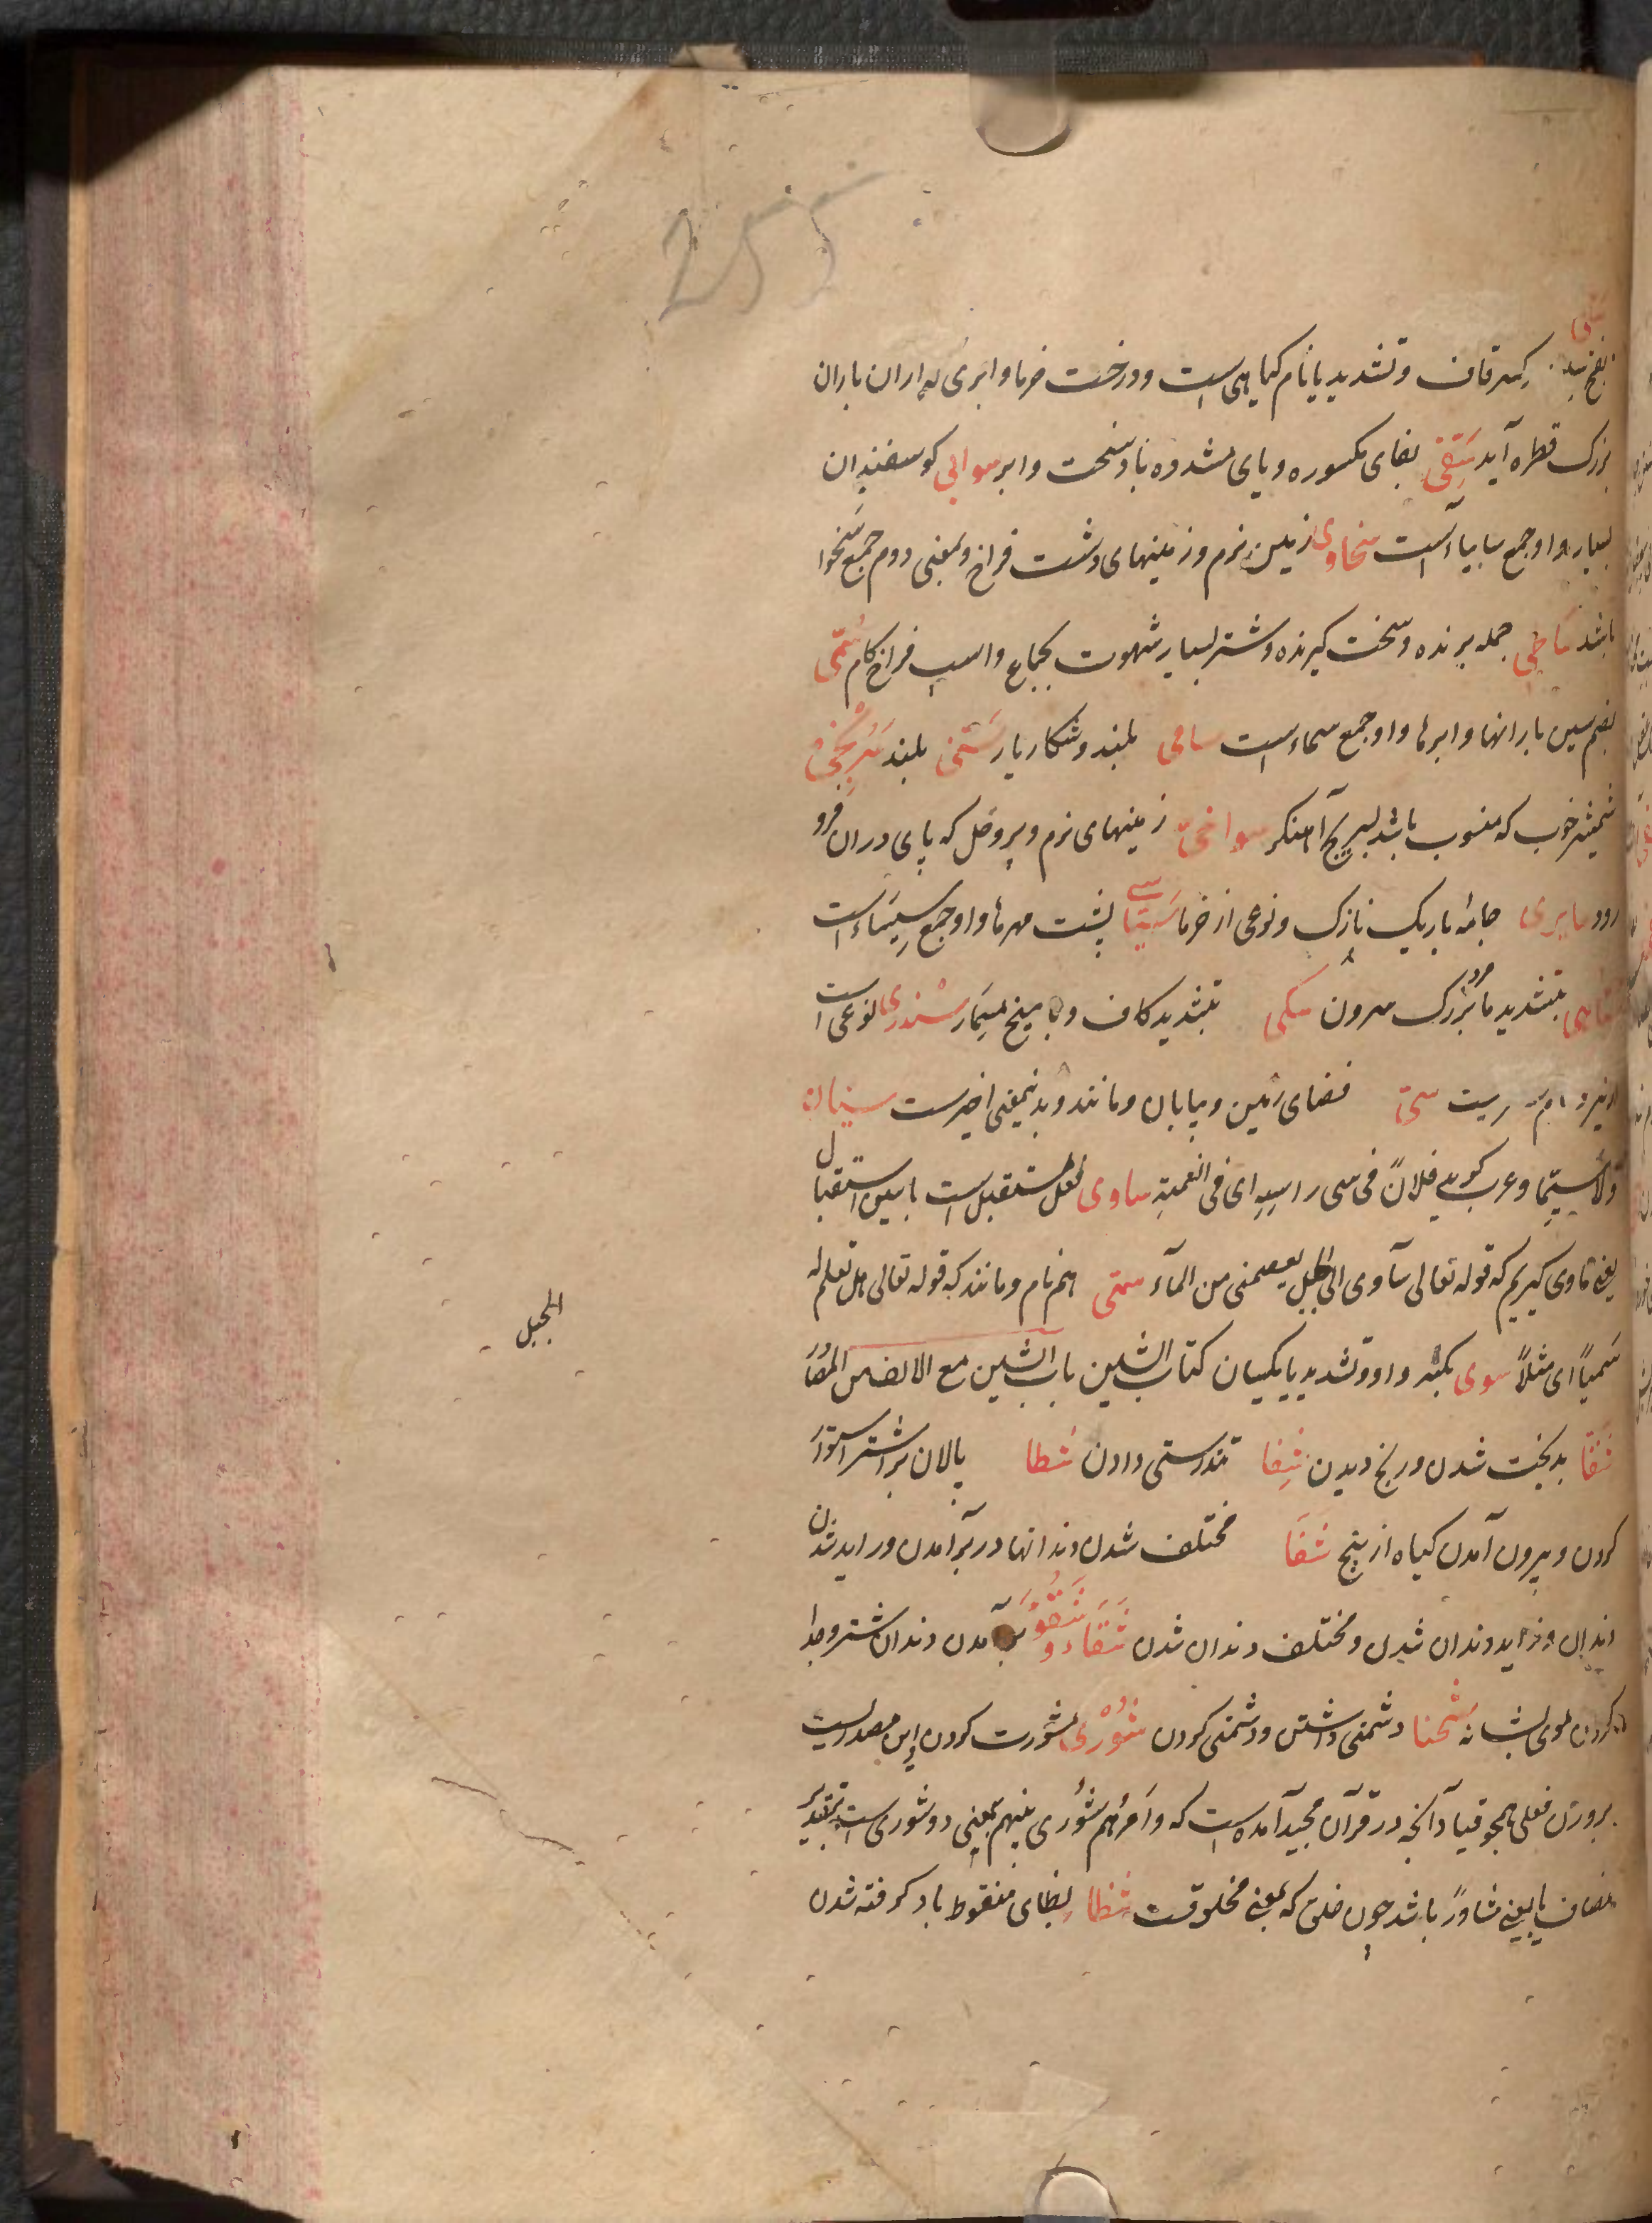 255
سقی
بفتح سین کسر قاف و تشدید یا نام کیاهی است و درخت خرما و ابری که باران باران
بزرک قطره آید سَفِیّ بفای مکسوره و یای مشدده باد سخت و ابر سوابی کوسفندان
بسیار و او جمع سابیاء است سخاوی زمین نرم و زمینهای دشت فراخ و بمعنی دوم جمع سَخوا
باشد سَاطِی حمله برنده و سخت کیرنده و شتر بسیار شهوت بجماع و اسب فراخ کام سُمِیّ
بضم سین بارانها و ابرها و او جمع سماء است سامی بلند و شکار یار سَنَی بلند سُرَیجی
شمشیر خوب که منسوب باشد بسریج آهنکر سواخیّ زمینهای نرم و پر وحل که پای در ان فرو
رود سابری جامهٔ باریک نازک و نوعی از خرما سَیَاسی پشت مهرها و او جمع سِیسَاء است
بتشدید ما بزرک سرون سکی بتشدید کاف و یا میخ مسِمار سَنْدری نوعی است
سیّ فضای زمین و بیابان و مانند و بدینمعنی اخیرست سیان
ولاسیّما و عرب کویند فلانٌ فی سی راسِهِ ای فی النعمةِ ساوی فعل مستقبل است با سین استقبال
یعنی ماوی کیریم که قوله تعالی سآوی الی الجبل یعصمنی من المآء سمّی هم نام و مانند که قوله تعالی هل تعلم له
الجبل
سَمیّاً ای مثلاً سوی بکسر واو و تشدید یا یکسان کتاب الشین باب الشین مع الالف من المصَادر
شَقَا بدبخت شدن و رنج دیدن شِفا تندرستی دادن شطا پالان بر اشتر استوار
کردن و بیرون آمدن کیاه از بیخ شغَا مختلف شدن دندانها در برآمدن و زاید شدن
دندان و زاید دندان شدن و مختلف دندان شدن شَقَاء و شَقُوْ برآمدن دندان شتر و جدا
کردن موی بشانه شَحْنا دشمنی داشتن و دشمنی کردن شُوْرٰی مشورت کردن و این مصدر است
بروزن فعلی همچو فتیا و آنچه در قرآن مجید آمده است که و اَمْرُهم شُوری بینهم بمعنی ذو شوری است بتقدیر
مضاف یا بمعنی مشاورٌ باشد چون خلق که بمعنی مخلوقست شظا بظای منقوط باد کرفته شدن